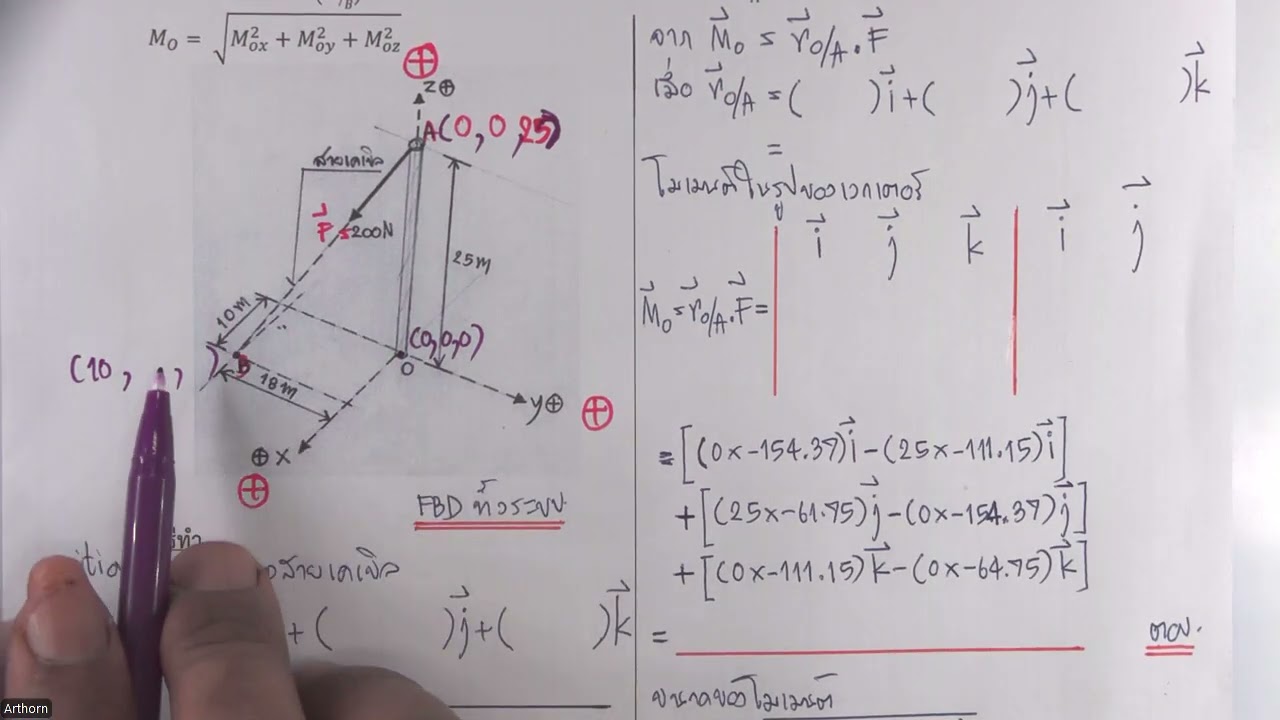 M_O = √(M_{Ox}^2 + M_{Oy}^2 + M_{Oz}^2)
⊕
z⊕
A(0, 0, 25)
สายเคเบิล
F⃗ = 200N
25m
10m
(0,0,0)
(10, , )
B
O
18m
y⊕ ⊕
⊕ x
⊕
FBD ทั้งระบบ
สายเคเบิล
+ ( )j⃗+( )k⃗
จาก M⃗o = r⃗O/A.F⃗
เมื่อ r⃗O/A = ( )i⃗+( )j⃗+( )k⃗
=
โมเมนต์ในรูปของเวกเตอร์
i⃗ j⃗ k⃗ i⃗ j⃗
M⃗o=r⃗O/A.F⃗=
=[(0x-154.37)i⃗-(25x-111.15)i⃗]
+[(25x-61.75)j⃗-(0x-154.37)j⃗]
+[(0x-111.15)k⃗-(0x-64.75)k⃗]
= ตอบ.
ขนาดของโมเมนต์
Arthorn